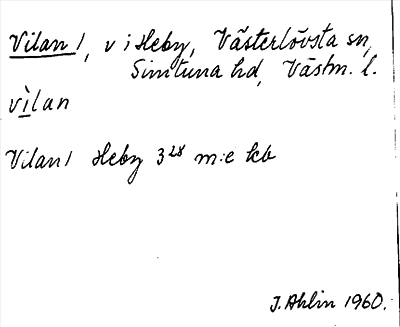 Vilan 1, v i Heby, Västerlövsta sn,
Simtuna hd, Västm. l.
vìlan
Vilan 1 Heby 3²⁸ m:e kb
J. Ahlin 1960.